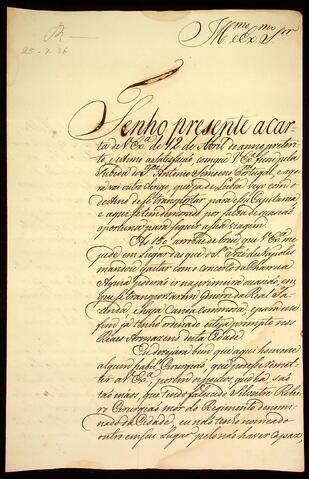 R
25-7-86
Illmo. e Exmo. Sor.
Tenho presente a car-
ta de V. Exa. de 12 de Abril do anno preteri-
to, e estimo a satisfação, com que V. Exa. ficou pela
subida do Pe. Antonio Simoens Portugal, e ago-
ra vai outro Clerigo, que já de Lisboa veyo com o
destino de se transportar para essa Capitania
e aqui se tem demorado por falta de ocasião
oportuna para seguir a sua viagem.
As 150 arrobas de breu, que V. Exa. me
pede em lugar das que o
mandou gastar com o concerto da Charrua
Aguia poderão ir na primeira ocasião, em
que se transportarem generos da Real Fa-
zenda, e haja Canoa commoda, para em
fim já tenho ordenado esteja prompto nos
Reaes Armazens desta Cidade.
Eu dezejára bem que aqui houvesse
algum habil Cirurgião, que podesse remet-
ter a V. Exa., porém os poucos, que ha, são
tão máos, que tendo falecido Silvestre Ribei-
ro Cirurgião mór do Regimento denomi-
nado da Cidade, eu não tenho nomeado
outro em seu lugar pelo não haver capaz,